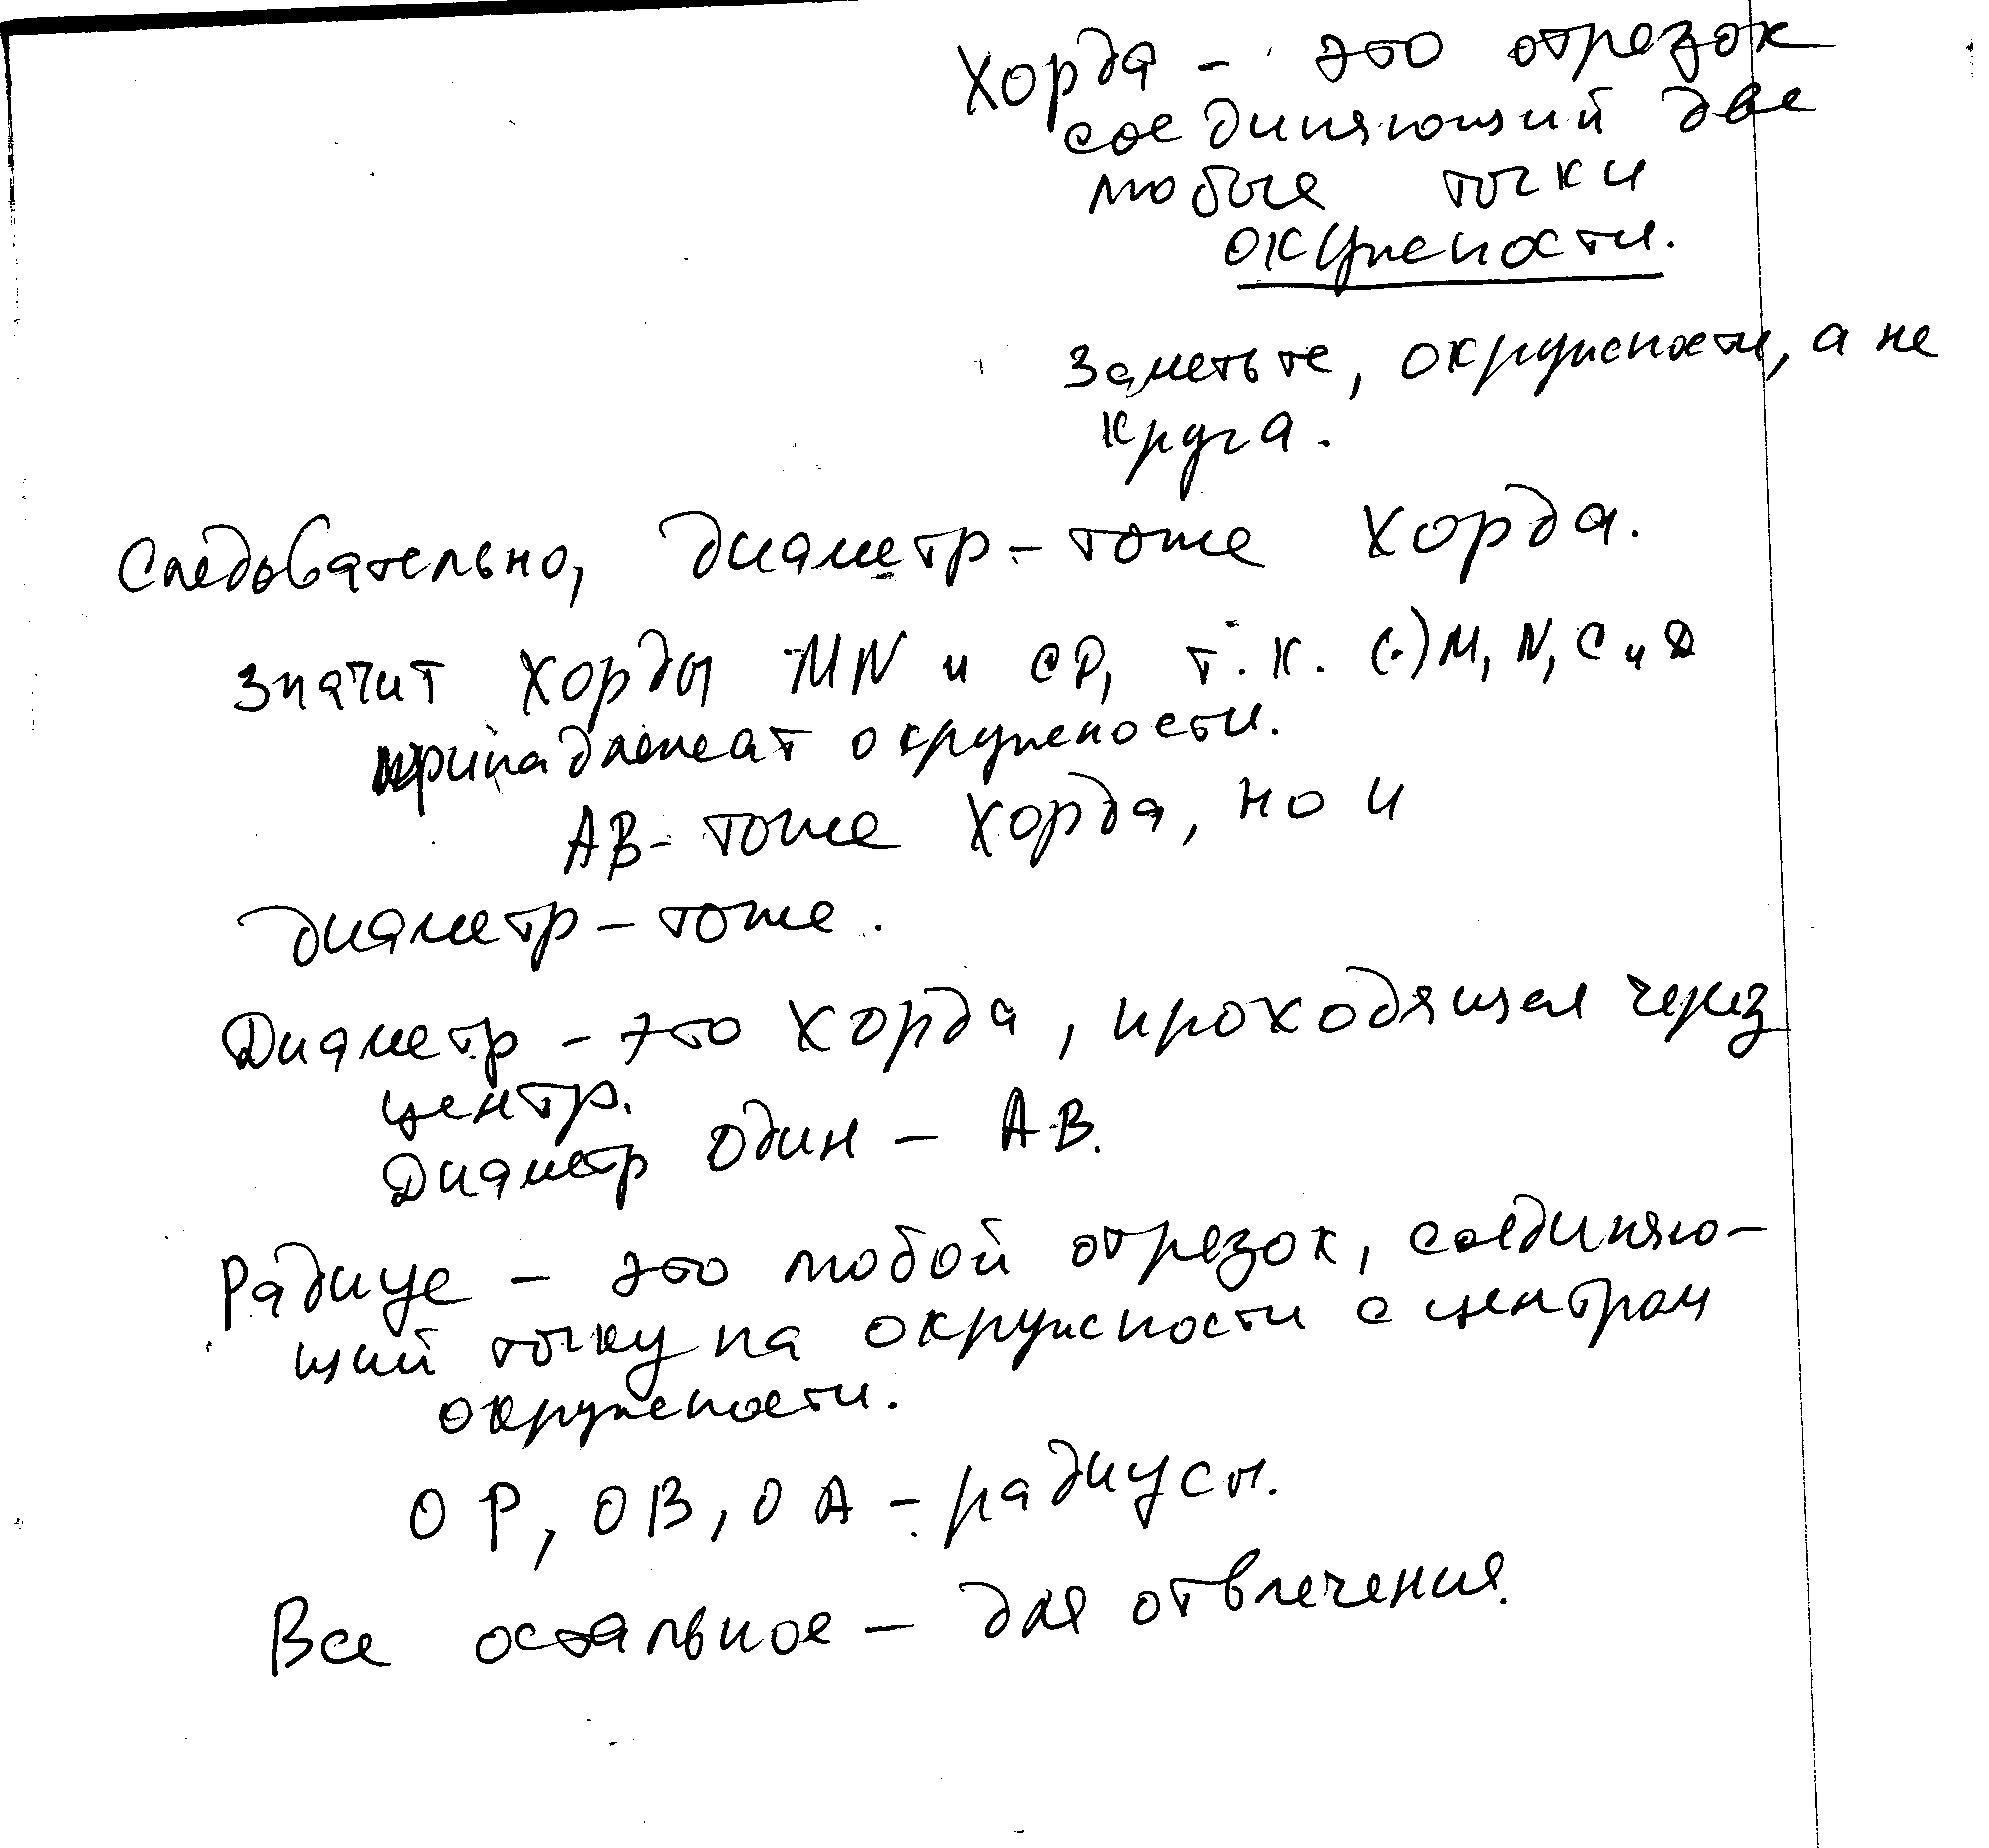 Хорда - это отрезок
соединяющий две
любые точки
окружности.
Заметьте, окружности, а не
круга.
Следовательно, диаметр - тоже хорда.
Значит хорды MN и CD, т.к. (.) M, N, C и D
принадлежат окружности.
AB - тоже хорда, но и
диаметр - тоже.
Диаметр - это хорда, проходящая через
центр.
Диаметр один - AB.
Радиус - это любой отрезок, соединяю-
щий точку на окружности с центром
окружности.
OP, OB, OA - радиусы.
Все остальное - для отвлечения.